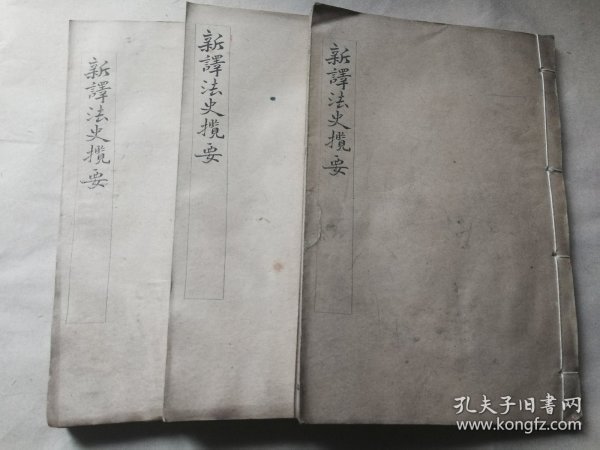 新譯法史攬要
新譯法史攬要
新譯法史攬要
孔夫子旧书网
www.kongfz.com